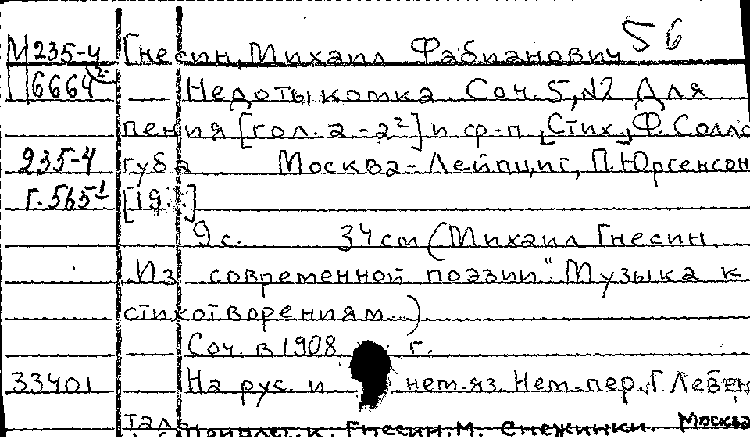 56
М 235-4 Гнесин, Михаил Фабианович
6664 Недотыкомка Соч. 5, №2 Для
пения [гол. a-a²] и ф-п. [Стих.] Ф. Солло
235-4 губа Москва-Лейпциг, П. Юргенсон
Г. 565¹ [19..]
9 с. 34 см (Михаил Гнесин
Из современной поэзии" Музыка к
стихотворениям.)
Соч. в 1908 г.
33401 На рус. и нем. яз. Нем. пер. Г. Левен
таля
Гнесин. М. Снежинки. Москва